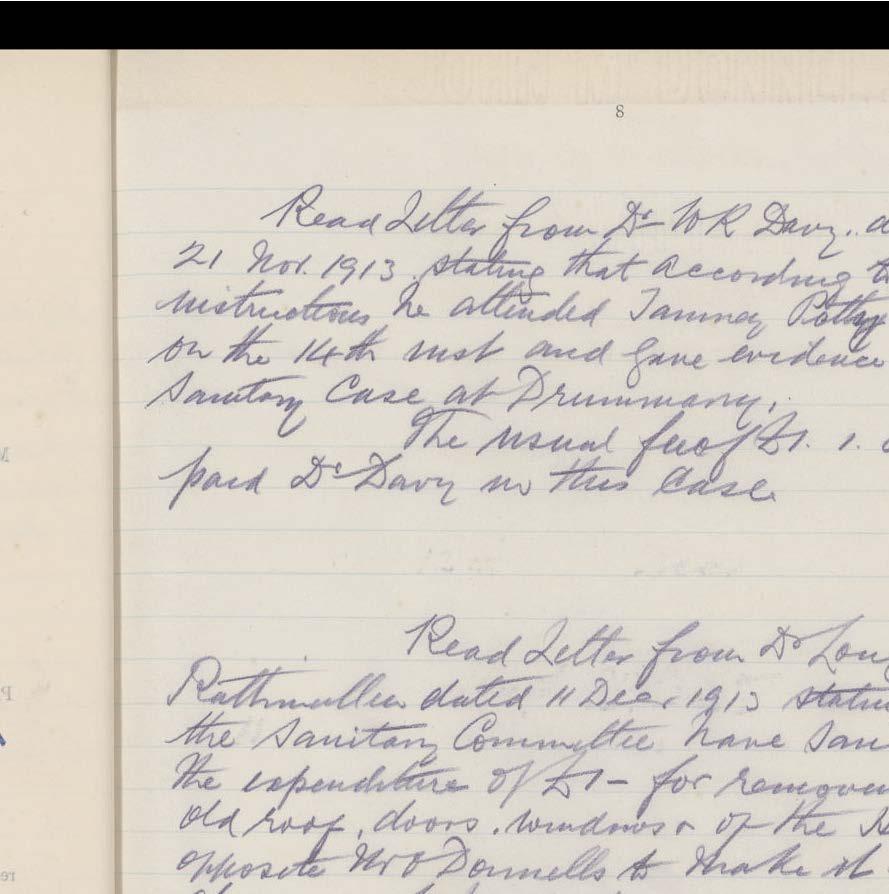 8
Read Letter from Dr W R Davy. d
21 Nov. 1913. stating that according to
instructions he attended Tamney Petty
on the 14th inst and gave evidence
Sanitary Case at Drummany.
The usual fee of £1. 1.
paid Dr Davy in this Case
Read Letter from Dr
Rathmullen dated 11 Decr 1913
the Sanitary Committee have
the expenditure of £1 - for
old roof, doors, windows of the
opposite Mr O Donnells to make it